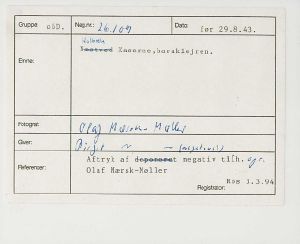 Gruppe oåD. Neg.nr.: 26.109 Dato: før 29.8.43.
Emne:
Kaserne, baraklejren.
Fotograf: Olaf Mærsk-Møller
Giver: Birgit " "
Referencer: Aftryk af deponeret negativ tilh. ogr.
Olaf Mærsk-Møller
Registrator: Ros 1.3.94